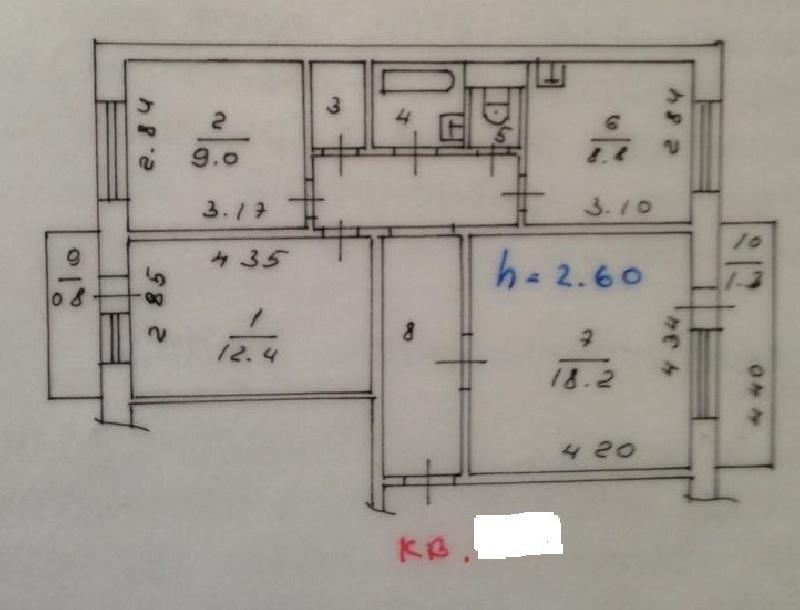 2
9.0
2.84
3.17
3
4
5
6
8.8
2 84
3.10
9
08
4 35
2 85
1
12.4
8
h = 2.60
7
18.2
4 34
4 20
10
1.3
4 40
кв.